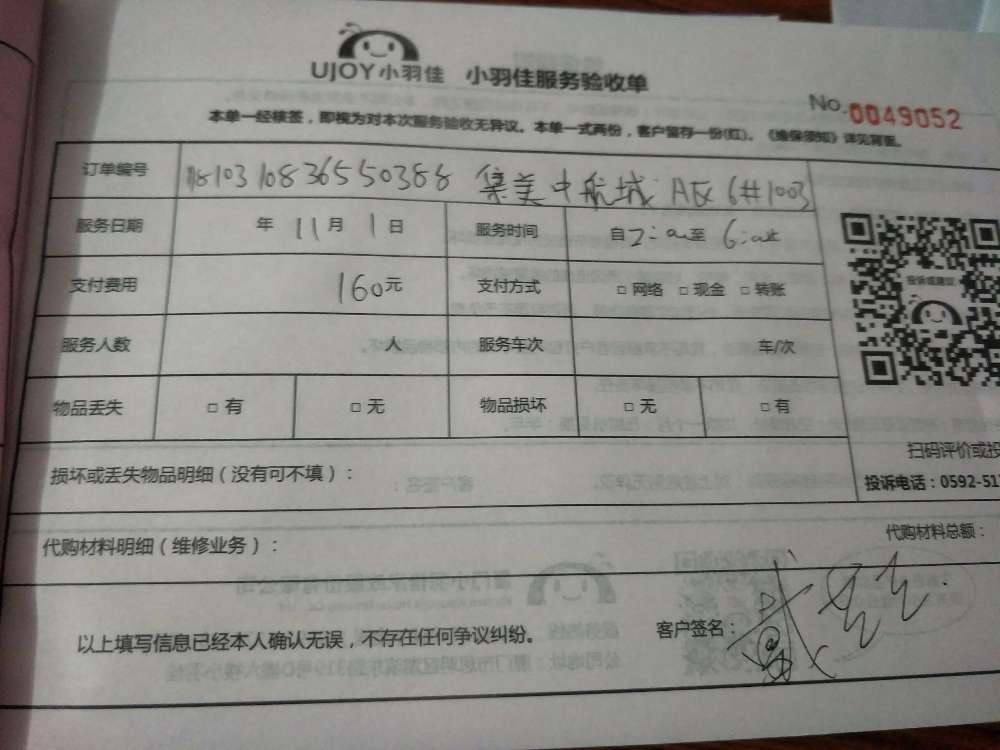 UJOY小羽佳 小羽佳服务验收单
No.0049052
本单一经核签，即视为对本次服务验收无异议。本单一式两份，客户留存一份(红)。《维保须知》详见背面。
订单编号 18103108365503 88 集美中航城A区6#1003
服务日期 年 11月 1日 服务时间 自2:00至6:00
支付费用 160元 支付方式 □ 网络 □ 现金 □ 转账
服务人数 人 服务车次 车/次
投诉或建议
物品丢失 □ 有 □ 无 物品损坏 □ 无 □ 有
扫码评价或投
损坏或丢失物品明细（没有可不填）：
投诉电话：0592-51
代购材料明细（维修业务）：
代购材料总额：
以上填写信息已经本人确认无误，不存在任何争议纠纷。
客户签名：